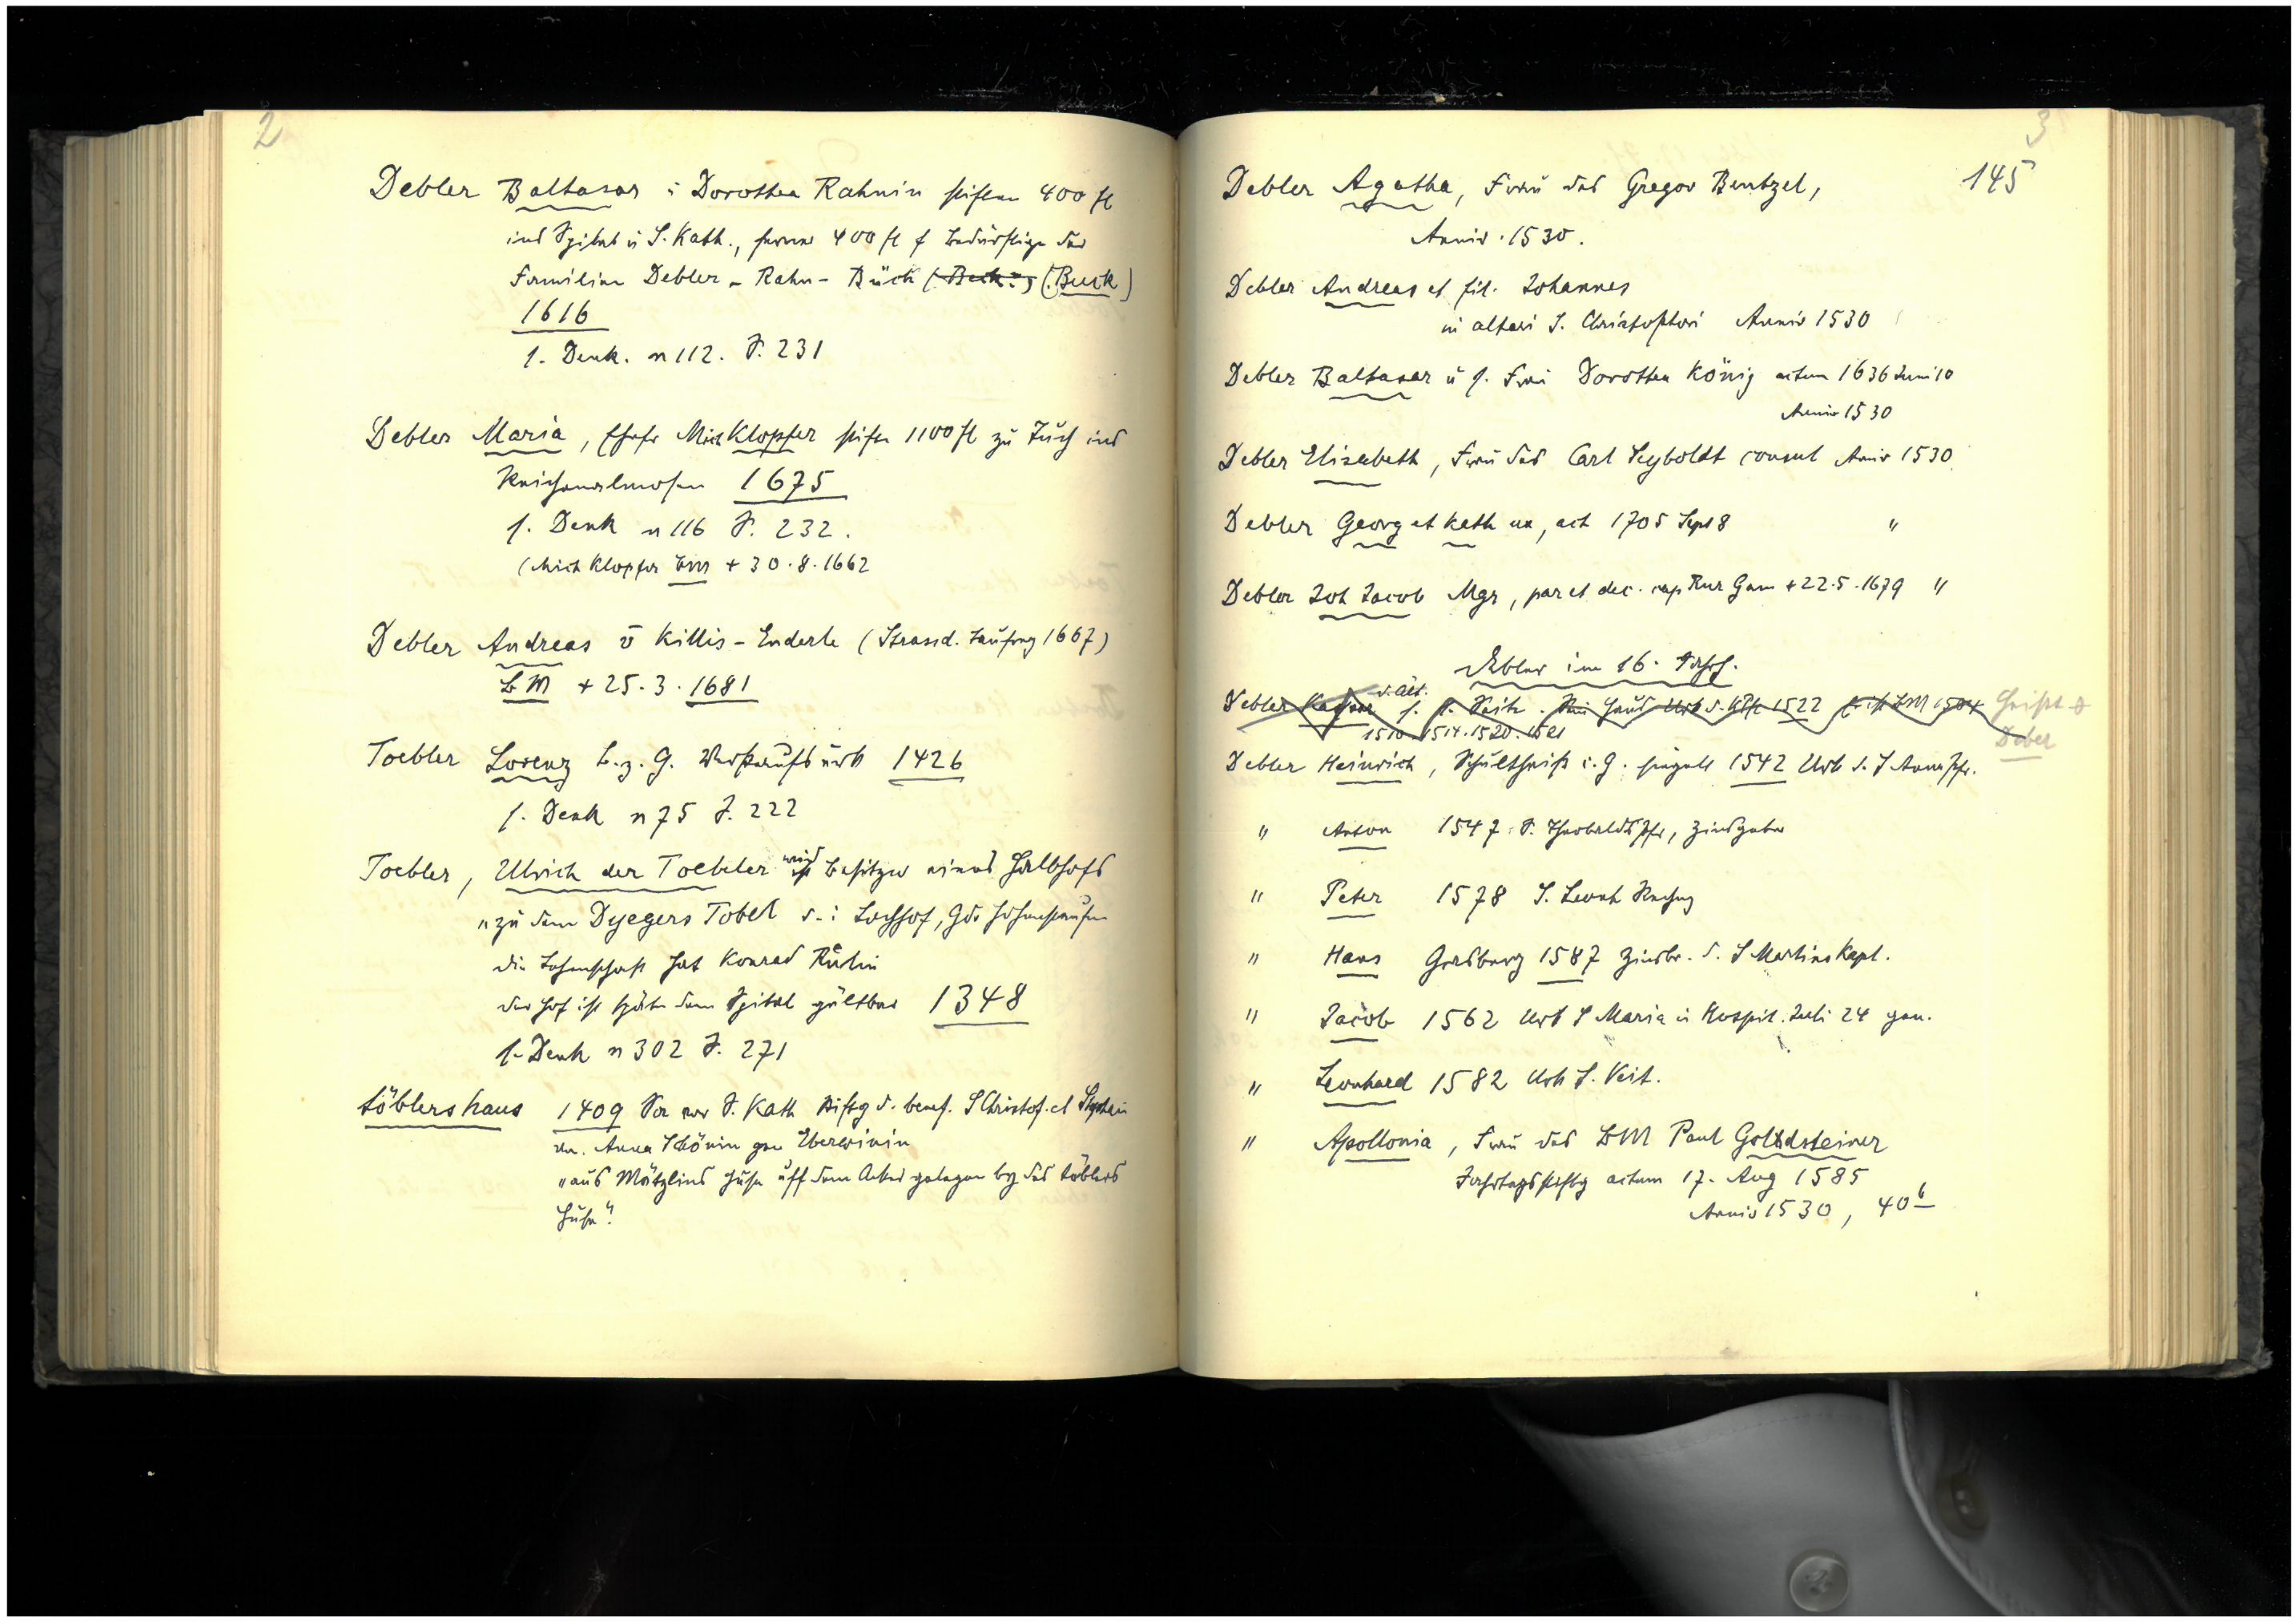 2
Debler Baltasar u Dorothea Rahnin stiften 400 fl
ins Spital u S. Kath., ferner 400 fl f Bedürftige der
Familien Debler - Rahn - Bück (Beck?) (Buck)
1616
s. Denk. n 112. S. 231
Debler Maria, Ehefr Mich Klopfer stiftn 1100 fl zu Tuch ins
Reichenalmosen 1675
s. Denk n 116 S. 232.
(Mich Klopfer BM + 30.8.1662
Debler Andreas v Killis-Enderle (Strassd. Taufreg 1667)
BM + 25.3.1681
Toebler Lorenz B. z. G. Verkaufsurk 1426
s. Denk n 75 S. 222
Toebler, Ulrich der Toebeler wird ist Besitzer eines Halbhofs
"zu dem Dyegers Tobel d. i. Lochhof, Gde Hohenstaufen
die Lehenschaft hat Konrad Rülin
der Hof ist später dem Spital gültbar 1348
s. Denk n 302 S. 271
töblers haus 1409 vor S. Kath Stiftg d. benef. S Christof. et
v. Anna Schönin gen Eberwinin
"aus Mätzlins Huse uff dem Acker gelegen by des töblers
Huse".
3
145
Debler Agatha, Frau des Gregor Bentzel,
Anniv. 1530.
Debler Andreas et fil. Johannes
in altari S. Christophori Anniv 1530
Debler Baltasar u s. Frau Dorothea König actum 1636 Juni 10
Anniv 1530
Debler Elisabeth, Frau des Carl Seyboldt consul Anniv 1530
Debler Georg et Kath ux, act 1705 Sept 8 "
Debler Joh Jacob Mgr, par et dec. cap Rur Gam + 22.5.1679 "
Debler im 16. Jahrh.
d. Ält.
Debler Kaspar s. Haus Urb d. 1522 ist BM 1504 heisst
1510. 1514. 1520. 1521 Deber
Debler Heinrich, Schultheiss i. G. siegelt 1542 Urb d. S Anna Pfr.
" Anton 1547 S. Theobalds Pfr, Zinsgeber
" Peter 1578 S. Leonh Rechng
" Hans 1587 Zinsbr. d. S Martins Kapl.
" Jacob 1562 Urb S Maria in Hospit. Juli 24 gen.
" Leonhard 1582 Urk S. Veit.
" Apollonia, Frau des BM Paul Goldsteiner
Jahrtagsstiftg actum 17. Aug 1585
Anniv 1530, 40 b